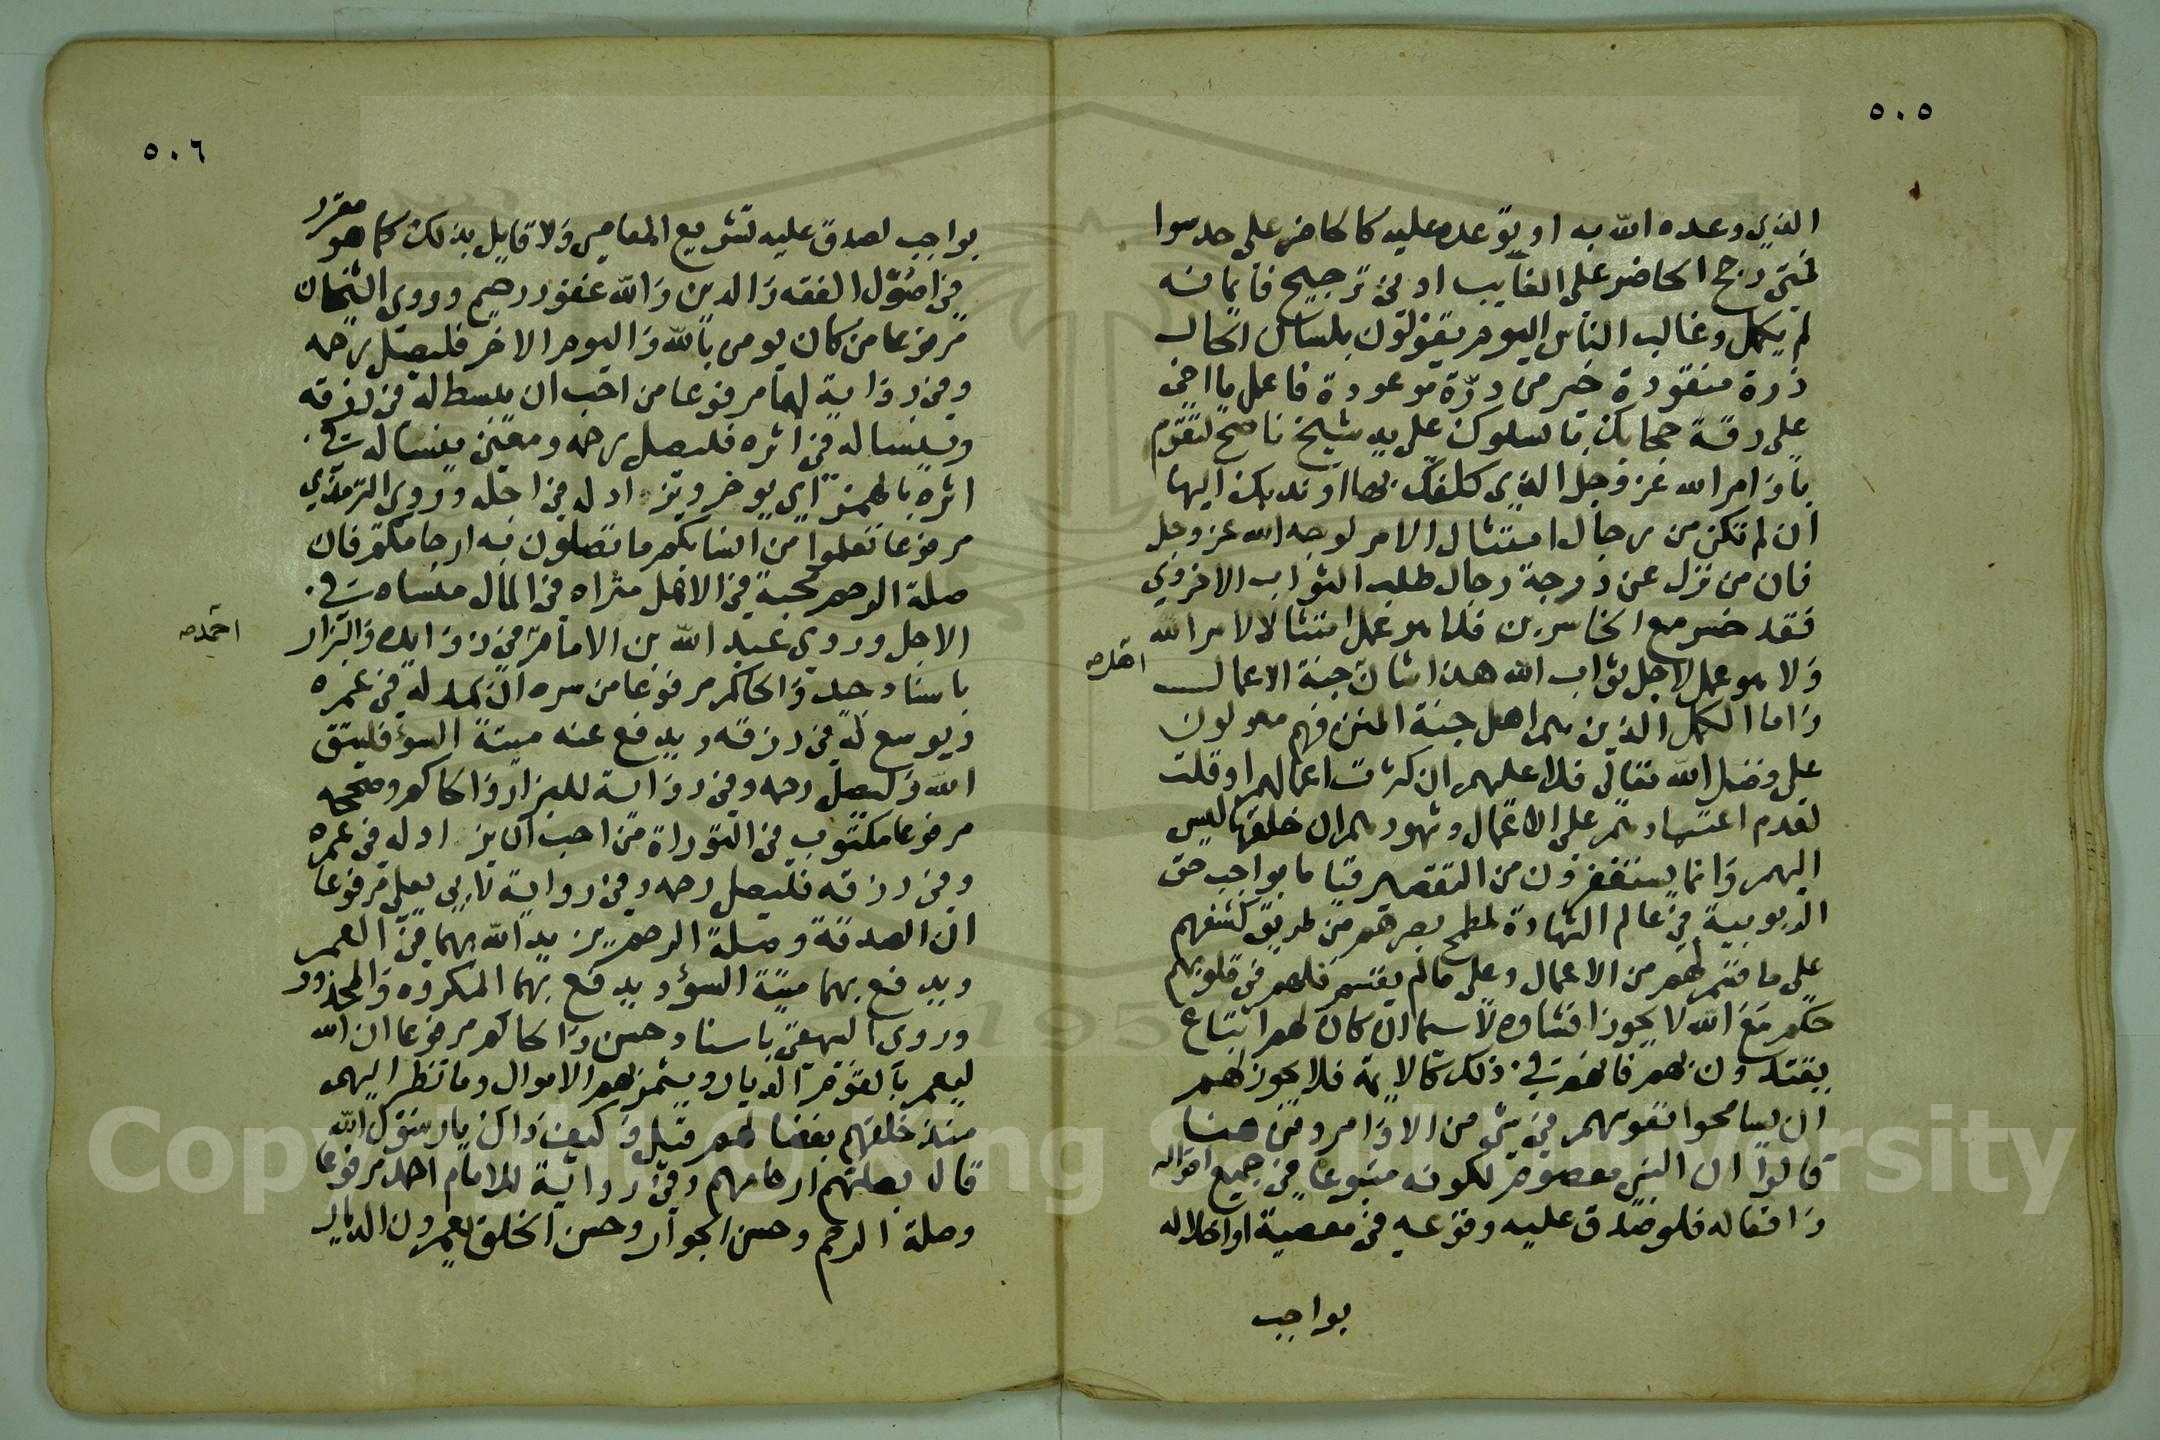 ٥٠٥
الذي وعده الله به او توعده عليه كالحاضر على حد سوا
فمتى رجح الحاضر على الغايب ادنى ترجيح فايمانه
لم يكمل وغالب الناس اليوم يقولون بلسان الحال
ذرة منقودة خير من درّة موعودة فاعمل يا اخي
على رقة حجابك بالسلوك على يد شيخ ناصح لتقوم
باوامر الله عز وجل الذي كلفك بها او ندبك اليها
ان لم تكن من رجال امتثال الامر لوجه الله عز وجل
فان من نزل عن درجة رجال طلب الثواب الاخروي
فقد خسر مع الخاسرين فلا هو عمل امتثالا لامر الله
ولا هو عمل لاجل ثواب الله هذا شان جنة الاعمال
واما الكمل الذين هم اهل جنة المنن فهم معولون
على فضل الله تعالى فلا عليهم ان كثرت اعمالهم او قلت
لعدم اعتمادهم على الاعمال وشهودهم ان خلقها ليس
اليهم وانما يستغفرون من التقصير قياما بواجب حق
الربوبية في عالم الشهادة لمطمح بصرهم من طريق كشفهم
على ما قسم لهم من الاعمال وعلى ما لم يقسم فلهم في قلوبهم
حكم مع الله لا يجوز افشاوه لا سيما ان كان لهم اتباع
يقتدون بهم فانهم في ذلك كالايمة فلا يجوز لهم
ان يسامحوا نفوسهم في شي من الاوامر ومن هنا
قالوا ان النبي معصوم لكونه متبوعا في جميع اقواله
وافعاله فلو صدق عليه وقوعه في معصية او اخلاله
بواجب
٥٠٦
بواجب لصدق عليه تشريع المعاصي ولا قايل بذلك كما هو مقرر
في اصول الفقه والدين والله غفور رحيم وروى الشيخان
مرفوعا من كان يومن بالله واليوم الاخر فليصل رحمه
وفي رواية لهما مرفوعا من احب ان يبسط له في رزقه
وينسا له في اثره فليصل رحمه ومعنى ينسا له في
اثره بالهمز اي يوخر ويزاد له في اجله وروى الترمذي
مرفوعا تعلموا من انسابكم ما تصلون به ارحامكم فان
صلة الرحم محبة في الاهل مثراه في المال منساه في
الاجل وروى عبد الله بن الامام في زوايده والبزار
احمد صح
باسناد جيد والحاكم مرفوعا من سره ان يمد له في عمره
ويوسع له في رزقه ويدفع عنه ميتة السوء فليتق
الله وليصل رحمه وفي رواية للبزار والحاكم وصححه
مرفوعا مكتوب في التوراة من احب ان يزاد له في عمره
وفي رزقه فليصل رحمه وفي رواية لابي يعلى مرفوعا
ان الصدقة وصلة الرحم يزيد الله بهما في العمر
ويدفع بهما ميتة السؤ ويدفع بهما المكروه والمحذور
وروى البيهقي باسناد حسن والحاكم مرفوعا ان الله
ليعمر بالقوم الديار ويثمر لهم الاموال وما نظر اليهم
منذ خلقهم بغضا لهم قيل وكيف ذاك يا رسول الله
قال بصلتهم ارحامهم وفي رواية للامام احمد مرفوعا
وصلة الرحم وحسن الجوار وحسن الخلق يعمرون الديار
Copyright © King Saud University